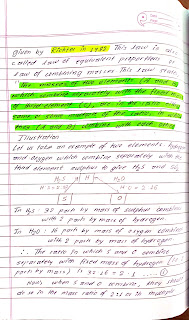 given by Richter in 1792. This law is also
called law of equivalent proportions or
law of combining masses. This law states
"The masses of two elements (A and B)
which combine separately with the fixed mass
of third element (C) are in the same ratio
same or some multiple of the ratio in which
they (A and B) combine with each other
Illustration
Let us take an example of two elements
and oxygen which combine separately with the
third element sulphur to give H₂S and SO₂
H₂S H H₂O
S O
In H₂S : 32 parts by mass of sulphur combine
with 2 parts by mass of hydrogen.
In H₂O : 16 parts by mass of oxygen combine
with 2 parts by mass of hydrogen
∴ The ratio to which S and O combine
separately with fixed mass of hydrogen
parts by mass) is 32:16 = 2:1
Now, when S and O combine, they should
do so in the mass ratio of 2:1 or in multiple